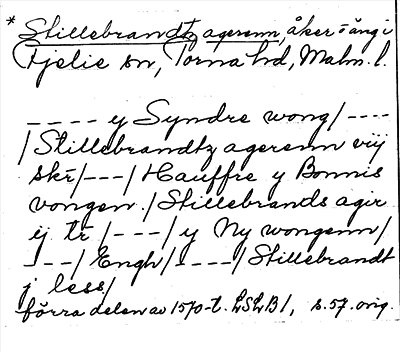 * Stillebrandtz agerenn, åker o äng i
Fjelie sn, Torna hd, Malm. l.
---- y Syndre wong/----
/Stillebrandtz agerenn vij
skr/---/Hauffre y Bonnis
vongen/Stillebrands agir
ij tr/---/y Ny wongenn/
---/Engh/----/Stillebrandt
j less/
förra delen av 1570-t. LSLB1, s. 57. orig.